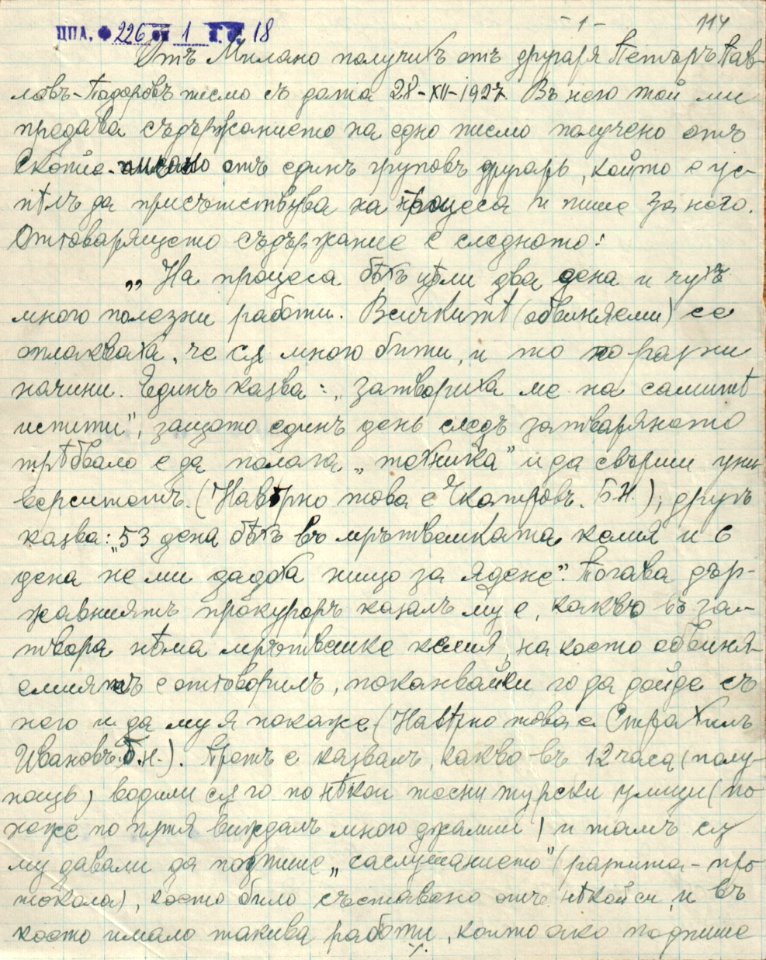 ЦПА, Ф 226 оп 1 а.е. 18
-1-
114
Отъ Милано получихъ отъ другаря Петъръ Пав-
ловъ-Тодоровъ писмо съ дата 28-XII-1927. Въ него той ми
предава съдържанието на едно писмо получено отъ
Скопие писано отъ единъ груповъ другарь, който е ус-
пѣлъ да присѫтствува на процеса и пише за него.
Отговарящето съдържание е следното:
„На процеса бѣхъ цѣли два дена и чухъ
много полезни работи. Всичкитѣ (обвиняеми) се
оплакваха, че сѫ много бити, и то по разни
начини. Единъ казва: „затвориха ме на самитѣ
испити", защото единъ день следъ затварянето
трѣбвало е да полага „техника" и да свърши уни-
верситетъ. (Навѣрно това е Чкатровъ. Б.Н.), другъ
казва: „53 дена бѣхъ въ мрътвешката келия и 6
дена не ми дадоха нищо за ядене". Тогава дър-
жавниятъ прокуроръ казалъ му е, какво въ за-
твора нѣма мрътвешке келия, на което обвиня-
емиятъ е отговорилъ, поканвайки го да дойде съ
него и да му я покаже (Навѣрно това е Страхилъ
Ивановъ. Б.Н.). Третъ е казвалъ, какво въ 12 часа (полу-
нощь) водили сѫ го по нѣкои тесни турски улици (по-
неже по пѫтя виждалъ много джамии) и тамъ сѫ
му давали да подпише „саслушанието" (разпита-про-
токола), което било съставено отъ нѣкой си, и въ
което имало такива работи, които ако подпише
./.